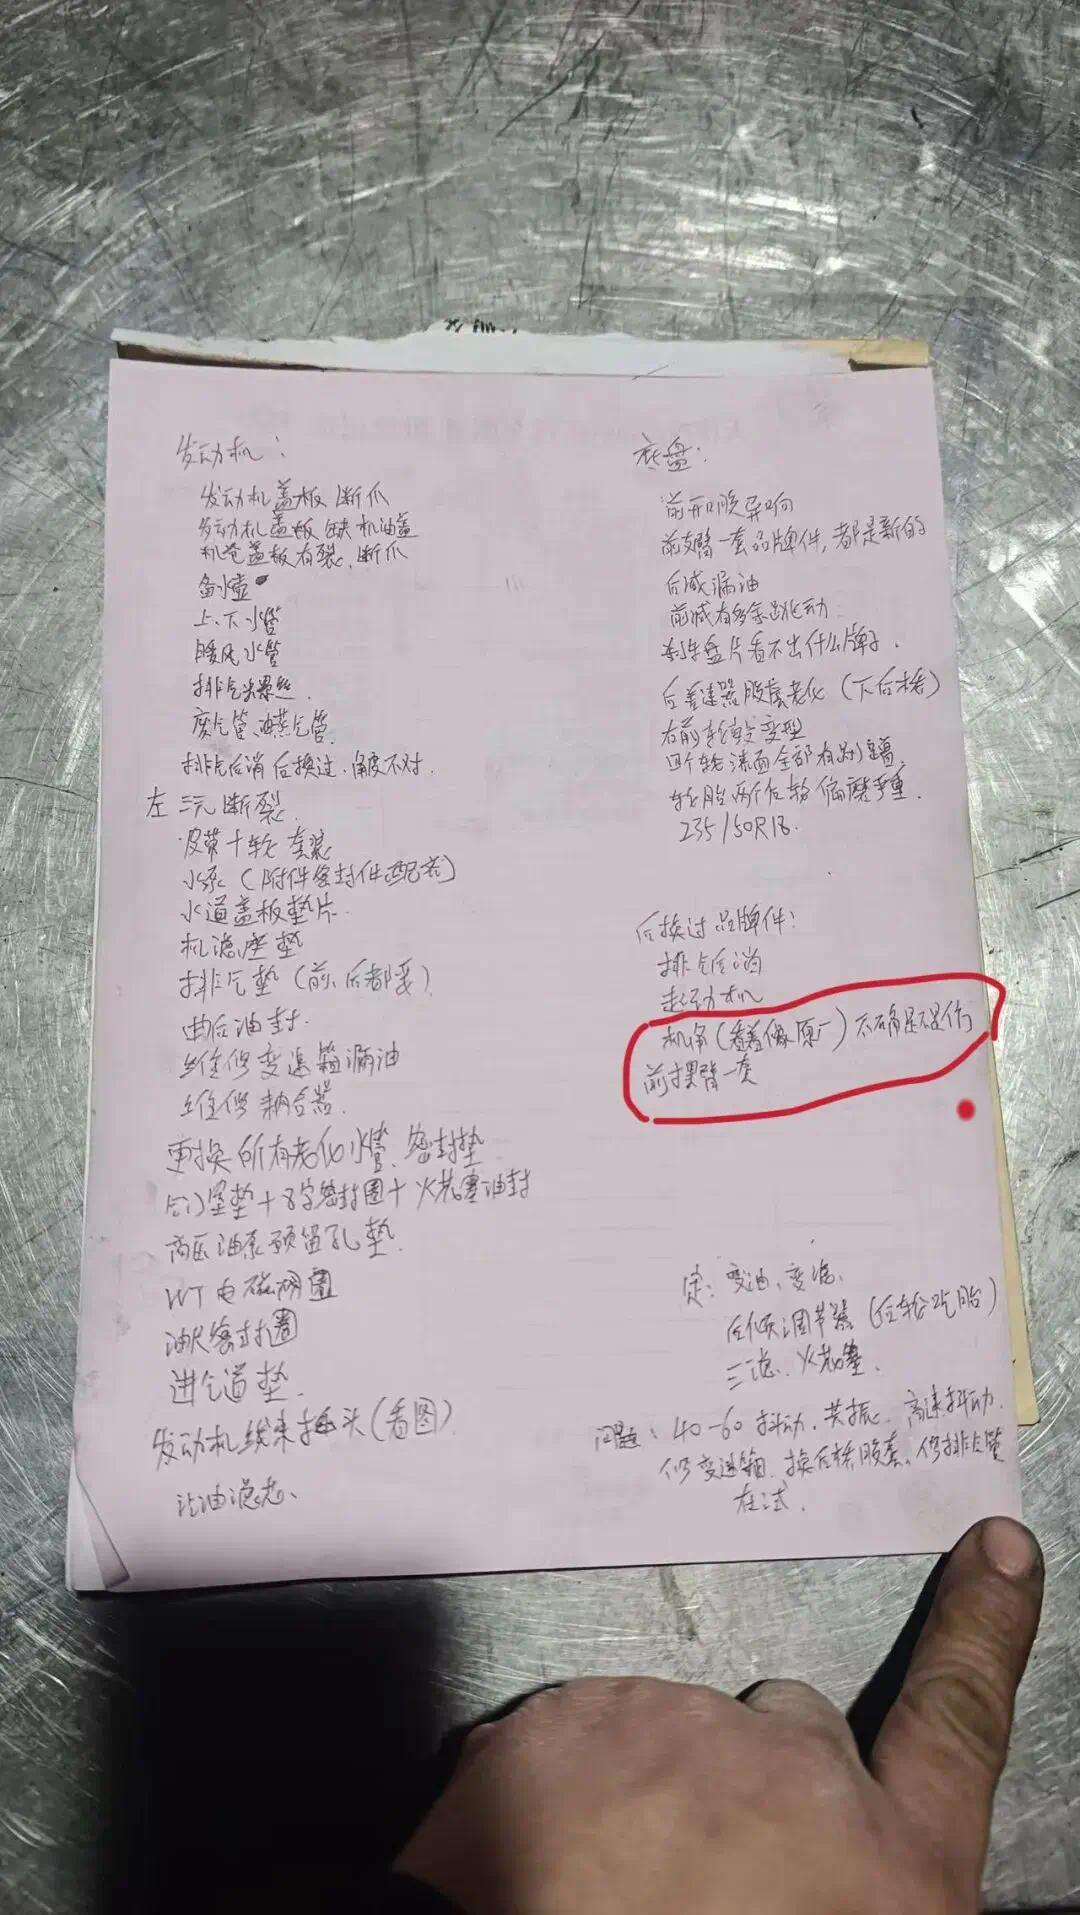 发动机：
发动机盖板断爪
发动机盖板缺机油盖
机仓盖板有裂、断爪
副水壶
上、下水管
暖风水管
排气头螺丝
废气管、油蒸气管
排气后消后换过、角度不对.
左三元断裂
皮带+轮套装
水泵(附件密封件配套)
水道盖板垫片
机滤座垫
排气垫(前、后都要)
曲后油封.
维修变速箱漏油
维修耦合器.
更换所有老化水管、密封垫
气门室垫+8字密封圈+火花塞油封
高压油泵预留孔垫
VVT电磁阀圈
油尺密封圈
进气道垫.
发动机线束插头(看图)
汽油滤芯、
底盘：
前开口胶异响
前支臂一套品牌件，都是新的
后减漏油
前减有多余跳动
刹车盘片看不出什么牌子.
后差速器胶套老化(下后桥)
右前轮毂变型
四个轮漆面全部有划磨
轮胎两个后轮偏磨严重.
235/50R18.
后换过品牌件：
排气后消
起动机
机脚(看着像原厂)不确定是不是仿
前摆臂一套
定：变油、变滤、
后倾调节器(后轮吃胎)
三滤、火花塞.
问题：40-60抖动、共振、高速抖动.
修变速箱、换后桥胶套、修排气管
在试.